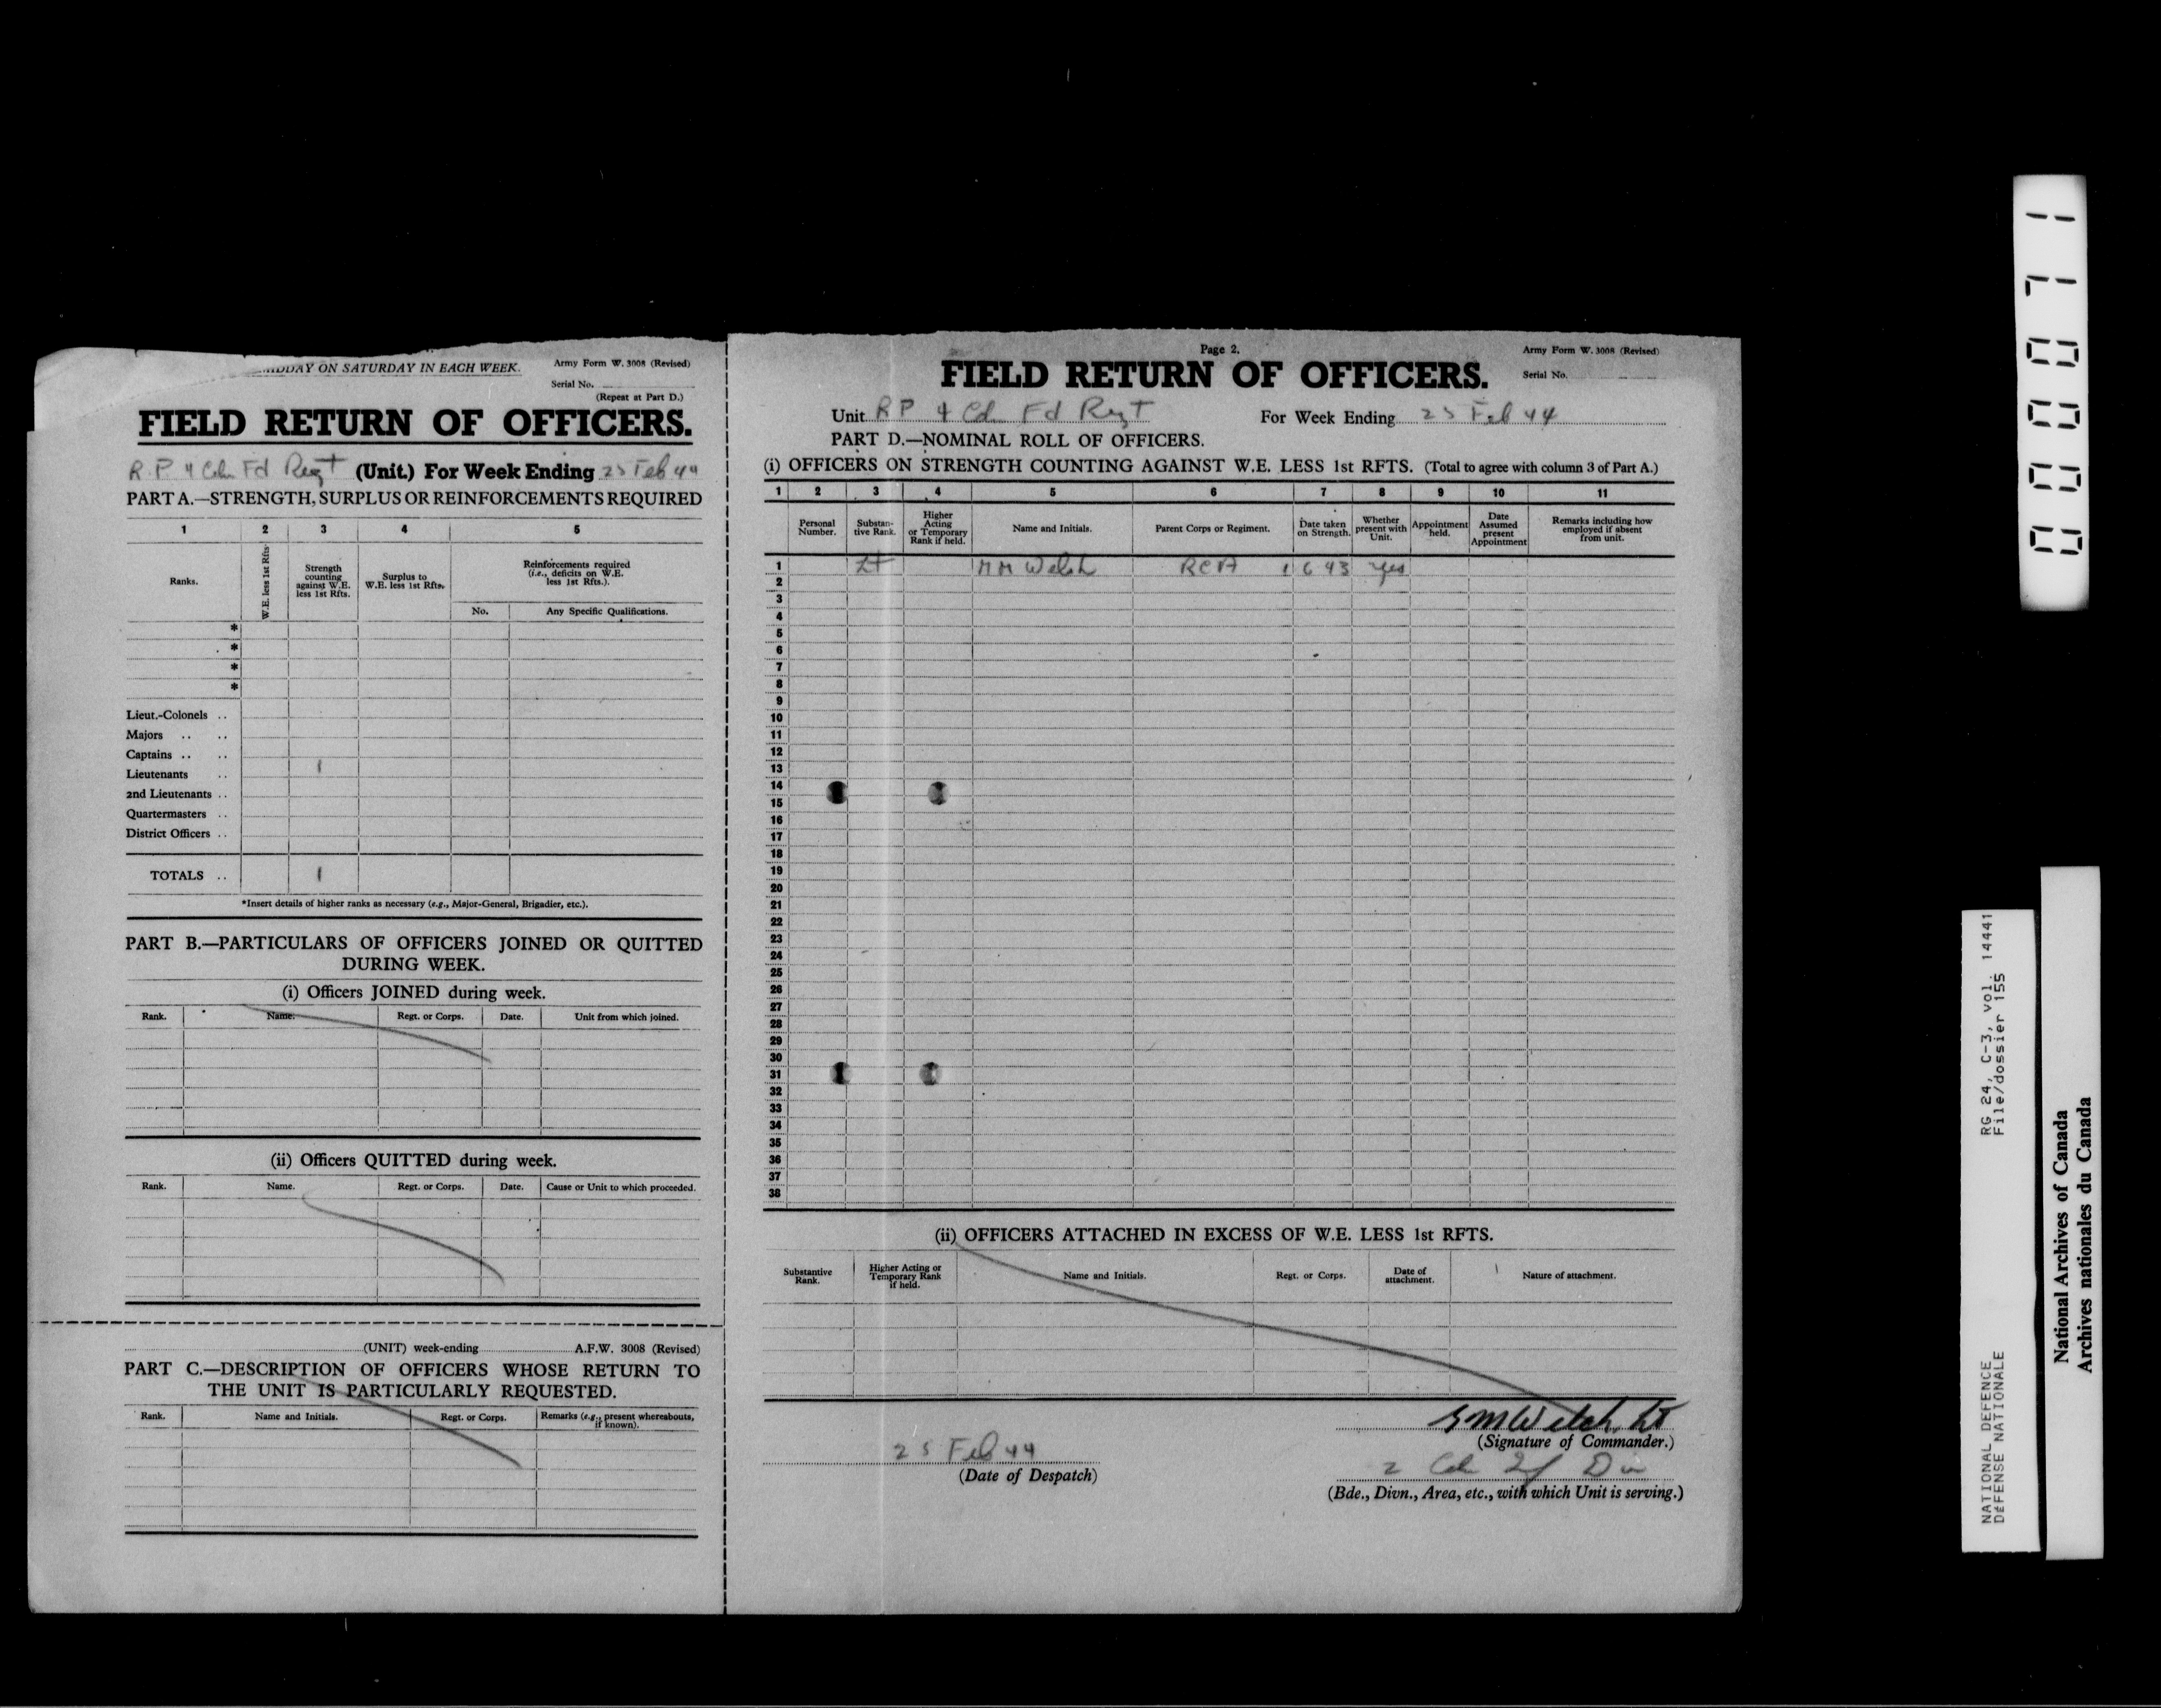 MIDDAY ON SATURDAY IN EACH WEEK.
Army Form W. 3008 (Revised)
Serial No.
(Repeat at Part D.)
FIELD RETURN OF OFFICERS.
R.P. 4 Cdn Fd Regt (Unit.) For Week Ending 25 Feb 44
PART A.—STRENGTH, SURPLUS OR REINFORCEMENTS REQUIRED
1 2 3 4 5
Ranks.
W.E. less 1st Rfts.
Strength counting against W.E. less 1st Rfts.
Surplus to W.E. less 1st Rfts.
Reinforcements required (i.e., deficits on W.E. less 1st Rfts.).
No. Any Specific Qualifications.
*
*
*
*
Lieut.-Colonels ..
Majors .. ..
Captains .. ..
Lieutenants .. 1
2nd Lieutenants ..
Quartermasters ..
District Officers ..
TOTALS .. 1
*Insert details of higher ranks as necessary (e.g., Major-General, Brigadier, etc.).
PART B.—PARTICULARS OF OFFICERS JOINED OR QUITTED
DURING WEEK.
(i) Officers JOINED during week.
Rank. Name. Regt. or Corps. Date. Unit from which joined.
(ii) Officers QUITTED during week.
Rank. Name. Regt. or Corps. Date. Cause or Unit to which proceeded.
(UNIT) week-ending A.F.W. 3008 (Revised)
PART C.—DESCRIPTION OF OFFICERS WHOSE RETURN TO
THE UNIT IS PARTICULARLY REQUESTED.
Rank. Name and Initials. Regt. or Corps. Remarks (e.g., present whereabouts, if known).
Page 2.
Army Form W. 3008 (Revised)
FIELD RETURN OF OFFICERS.
Serial No.
Unit R P 4 Cdn Fd Regt For Week Ending 25 Feb 44
PART D.—NOMINAL ROLL OF OFFICERS.
(i) OFFICERS ON STRENGTH COUNTING AGAINST W.E. LESS 1st RFTS. (Total to agree with column 3 of Part A.)
1 2 3 4 5 6 7 8 9 10 11
Personal Number.
Substantive Rank.
Higher Acting or Temporary Rank if held.
Name and Initials.
Parent Corps or Regiment.
Date taken on Strength.
Whether present with Unit.
Appointment held.
Date Assumed present Appointment
Remarks including how employed if absent from unit.
1 Lt Welsh RCA 1 6 43 Yes
2
3
4
5
6
7
8
9
10
11
12
13
14
15
16
17
18
19
20
21
22
23
24
25
26
27
28
29
30
31
32
33
34
35
36
37
38
(ii) OFFICERS ATTACHED IN EXCESS OF W.E. LESS 1st RFTS.
Substantive Rank.
Higher Acting or Temporary Rank if held.
Name and Initials.
Regt. or Corps.
Date of attachment.
Nature of attachment.
(Signature of Commander.)
25 Feb 44
(Date of Despatch)
2 Cdn Inf Div
(Bde., Divn., Area, etc., with which Unit is serving.)
000071
RG 24, C-3, vol. 14441
File/dossier 155
NATIONAL DEFENCE
DÉFENSE NATIONALE
National Archives of Canada
Archives nationales du Canada